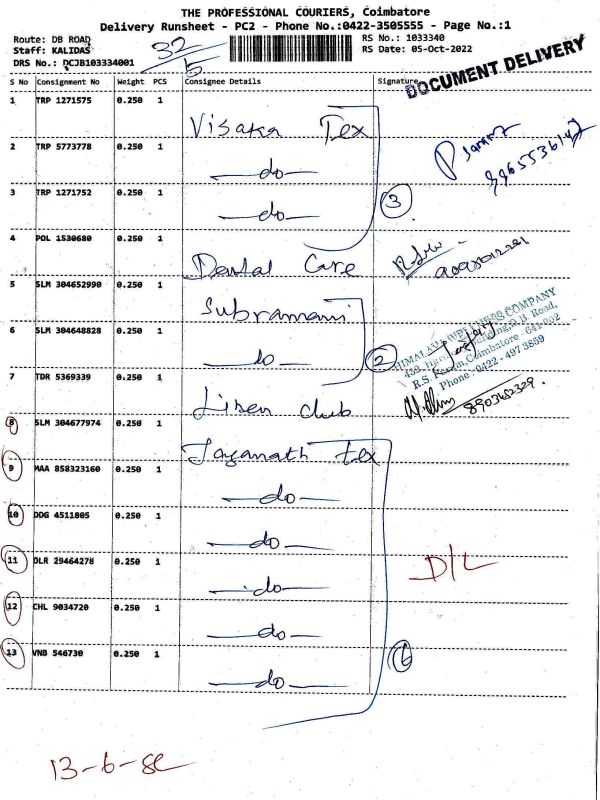 THE PROFESSIONAL COURIERS, Coimbatore
Delivery Runsheet - PC2 - Phone No.:0422-3505555 - Page No.:1
Route: DB ROAD
Staff: KALIDAS
DRS No.: DCJB103334001
32/5
RS No.: 1033340
RS Date: 05-Oct-2022
DOCUMENT DELIVERY
S No Consignment No Weight PCS Consignee Details Signature
1 TRP 1271575 0.250 1 Visaka Tex
2 TRP 5773778 0.250 1 —do—
3 TRP 1271752 0.250 1 —do—
3
4 POL 1530680 0.250 1 Dental Care
5 SLM 304652990 0.250 1 Subramani
6 SLM 304648828 0.250 1 —do—
2
HIMALAYA WELLNESS COMPANY
R.S. Puram, Coimbatore - 641 002
Phone: 0422 - 497 3839
7 TDR 5369339 0.250 1 Linen club
8903452329.
8 SLM 304677974 0.250 1 Jaganath tex
9 MAA 858323160 0.250 1 —do—
10 DDG 4511805 0.250 1 —do—
11 DLR 29464278 0.250 1 —do—
D/L
12 CHL 9034720 0.250 1 —do—
13 VNB 546730 0.250 1 —do—
6
13-6-